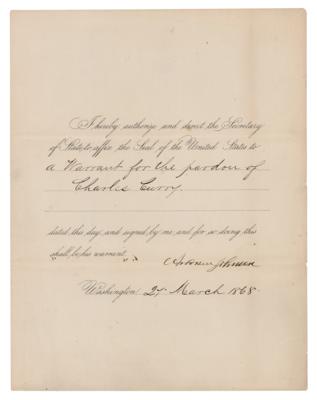 I hereby authorize and direct the Secretary
of State to affix the Seal of the United States to
a Warrant for the pardon of
Charles Curry.
dated this day, and signed by me, and for so doing this
shall be his warrant.
Andrew Johnson
Washington, 27 March 1868.